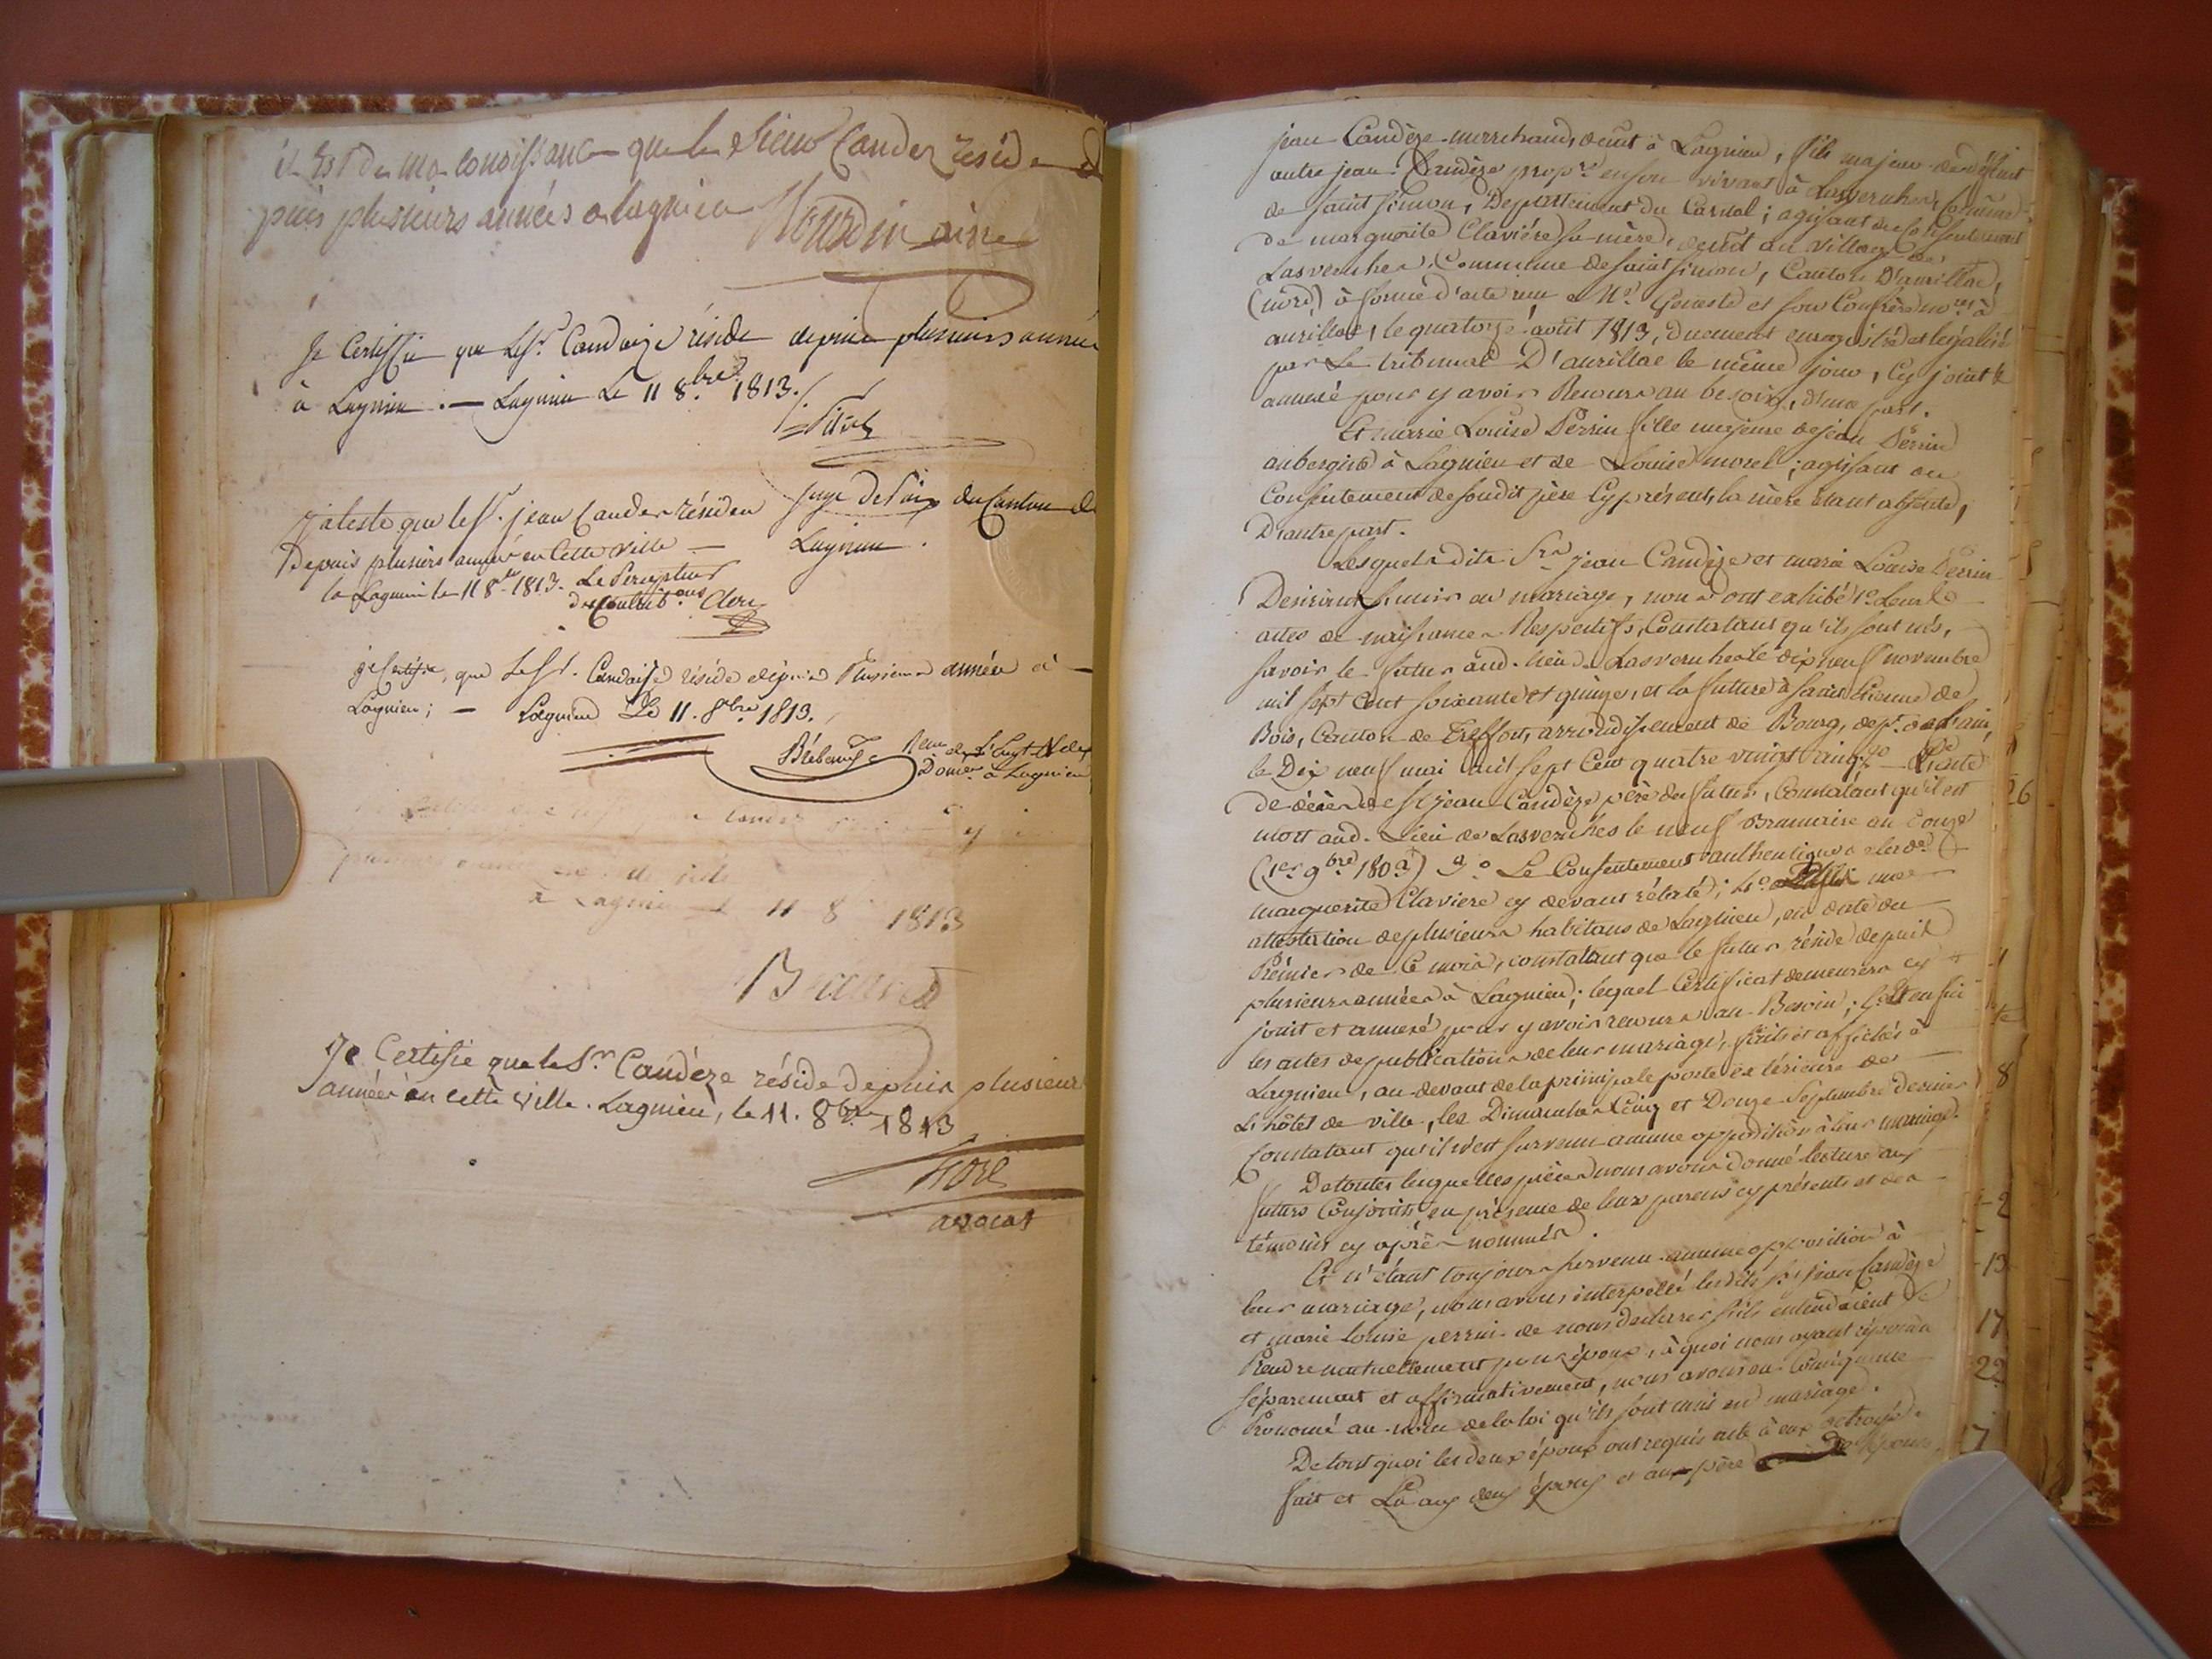 il Est de ma Conoissance que le Sieur Candez réside de
puis plusieurs années a lagnieu
Je Certiffie que le Sr. Candaize réside depuis plusieurs année
à Lagnieu. — Lagnieu Le 11 8.bre 1813.
Juge de Paix du Canton de
Lagnieu.
J'ateste que le Sr. jean Candez résiden
Depuis plusieurs année en Cette ville —
a Lagnieu le 11 8bre 1813. Le Percepteur
des Contrib.ons Clerc
je Certifie, que Le Sr. Candaize réside depuis Plusieurs année à
Lagnieu; — Lagnieu Le 11. 8bre 1813.
Domes. à Lagnieu
plusieurs année en cette ville
a Lagnieu le 11 8 1813
Je Certifie que le Sr. Candèze réside depuis plusieurs
années en cette ville. Lagnieu, le 11. 8bre 1813
avocat
jean Candèze marchand, demt à Lagnieu, fils majeur de deffunt
autre jean Candèze propre en son vivant à Lasveruhes, Commune
de Saint Simon, Departement du Cantal; agissant du consentement
de marguerite Clavière sa mère, demt au village de
Lasveruhes, Commune de Saint Simon, Canton D'aurillac,
(nord) à forme d'acte reçu Me Geneste et son Confrère nores à
aurillac, le quatorze août 1813, duement enregistré et légalisé
par Le tribunal D'aurillac le même jour, Cy joint &
annexé pour y avoir Recours au besoin, d'une part.
Et marie Louise Perrin fille majeure de jean Perrin
aubergiste à Lagnieu et de Louise morel; agissant du
Consentement de son dit père Cy présent, la mère étant absente,
D'autre part.
Lesquels dits Srs jean Candèze et marie Louise Perrin
Desirant s'unir en mariage, nous ont exhibé 1.o Leurs
actes de naissance Respectifs, Constatant qu'ils sont nés,
savoir le futur aud. lieu de Lasveruhes le dix neuf novembre
mil sept cent soixante et quinze, et la future à Saint Etienne de
Bois, Canton de Treffort, arrondissement de Bourg, dept. de l'ain,
le Dix neuf mai mil sept Cent quatre vingt cinq; 2o L'acte
de décès de Sr jean Candèze père du futur, Constatant qu'il est
mort aud. Lieu de Lasveruhes le neuf Brumaire an Onze
3.o Le Consentement authentique de lad.
marguerite Claviere cy devant rélaté; 4.o une
attestation de plusieurs habitans de Lagnieu, en date du
Prémier de Ce mois, constatant que le futur réside depuis
plusieurs années à Lagnieu; lequel Certificat demeurera cy
joint et annexé pour y avoir recours au Besoin; Et enfin
les actes de publication de leur mariage, faits et affichés à
Lagnieu, au devant de la principale porte éxtérieure de
L'hôtel de ville, les Dimanches Cinq et Douze Septembre dernier
Constatant qu'il n'est survenu aucune opposition à leur mariage.
De toutes lesquelles pièces nous avons donné lecture aux
futurs Conjoints en présence de leurs parens cy présents et des
témoins cy après nommés.
Et n'étant toujours survenu aucune opposition à
leur mariage, nous avons interpellé lesdits Sr. jean Candèze
et marie louise perrin de nous declarer s'ils entendoient se
Prendre mutuellement pour époux, à quoi nous ayant répondu
séparement et affirmativement, nous avons en Conséquence
Prononcé au nom de la loi qu'ils sont unis en mariage.
De tout quoi les deux époux ont requis acte à eux octroyé.
fait et Lû aux deux époux et au père de l'épouse,
26
8
2
13
17
22
17